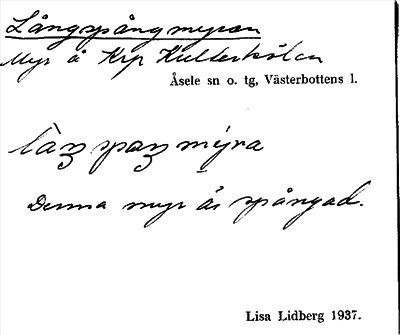 Långspångmyran
Myr å Krp Kullerkölen
Åsele sn o. tg, Västerbottens l.
làŋ spaŋ mýra
Denna myr är spångad.
Lisa Lidberg 1937.